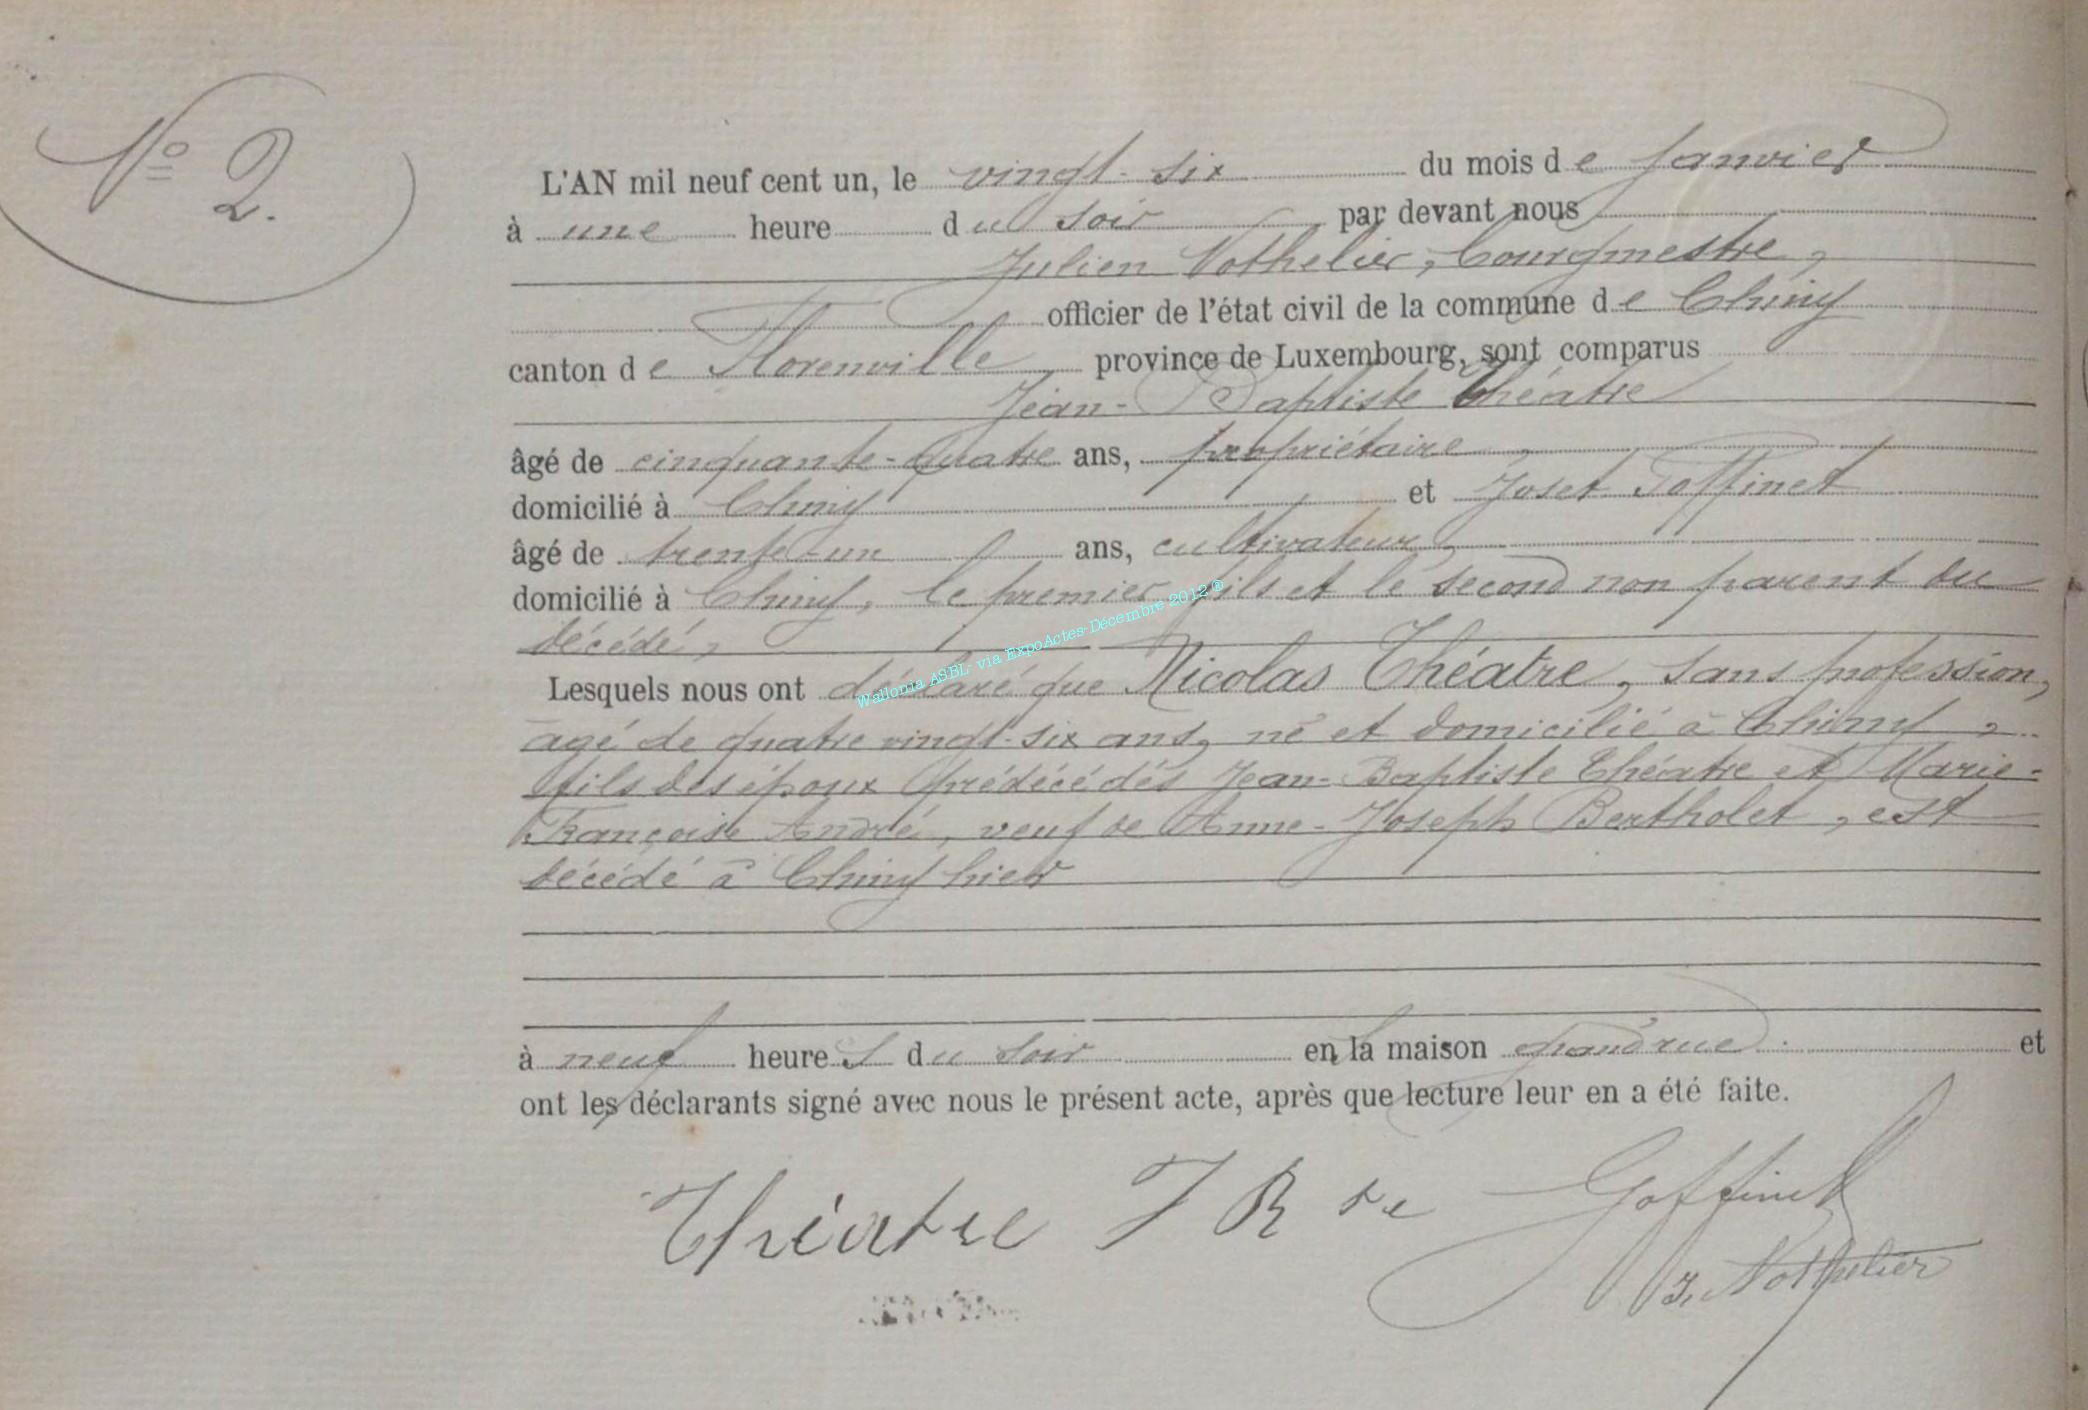 N° 2.
L'AN mil neuf cent un, le vingt-six du mois de Janvier
à une heure du soir par devant nous
Julien Nothelier, bourgmestre,
officier de l'état civil de la commune de Chiny
canton de Florenville province de Luxembourg, sont comparus
Jean-Baptiste Théatre
âgé de cinquante-quatre ans, propriétaire
domicilié à Chiny et Josef Goffinet
âgé de trente-un ans, cultivateur,
domicilié à Chiny, le premier fils et le second non parent du
décédé,
Lesquels nous ont déclaré que Nicolas Théatre, sans profession,
agé de quatre vingt-six ans, né et domicilié à Chiny,
fils des époux prédécédés Jean-Baptiste Théatre et Marie-
Françoise André, veuf de Anne-Joseph Bertholet, est
décédé à Chiny hier
à neuf heures du soir en la maison grand'rue. et
ont les déclarants signé avec nous le présent acte, après que lecture leur en a été faite.
Théatre J B te Goffinet
J. Nothelier
Wallonia ASBL- via ExpoActes-Décembre 2012®